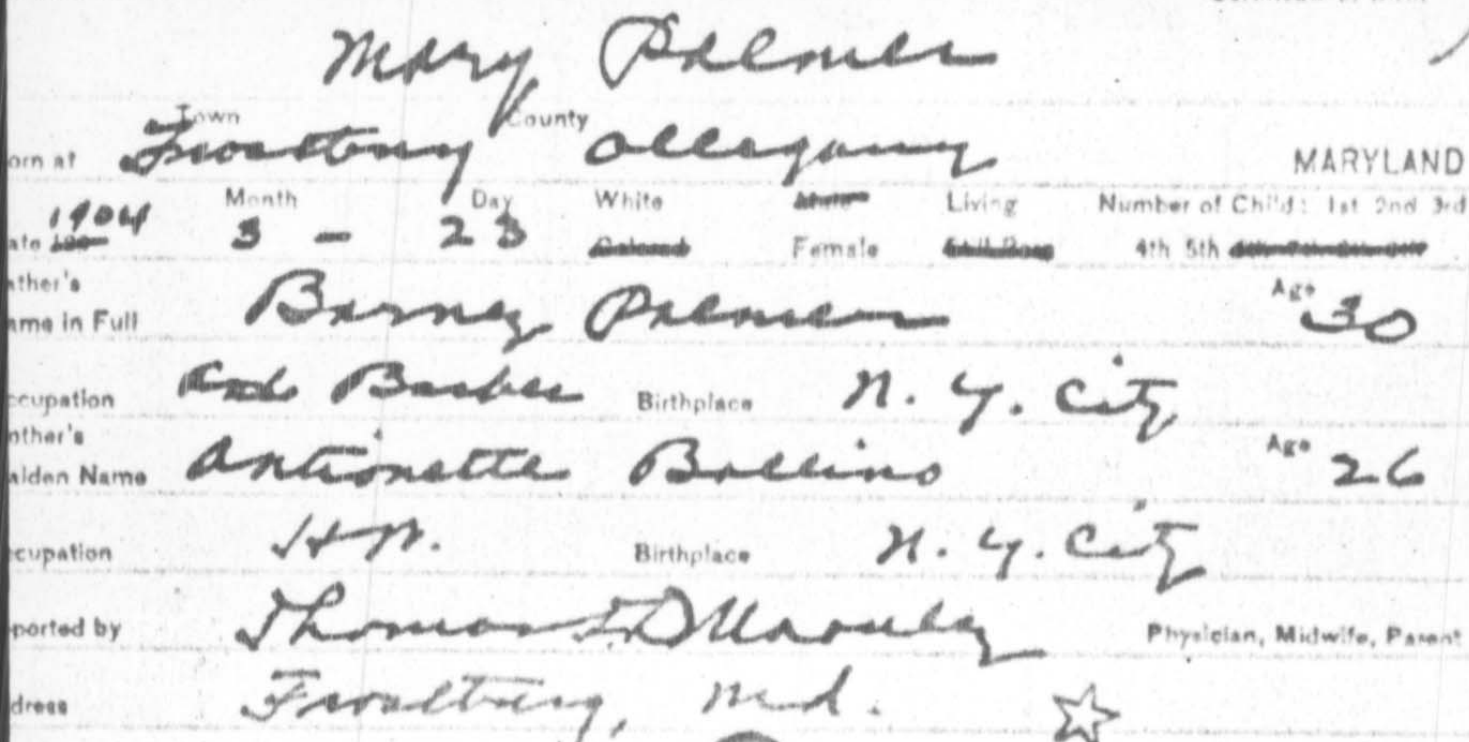 Mary Palmer
Town County
orn at Frostburg Allegany MARYLAND
1904 Month Day White Male Living Number of Child: 1st 2nd 3rd
ate 190 3 - 23 Colored Female Still Born 4th 5th
ather's
ame in Full Barney Palmer Age 30
ccupation Barber Birthplace N. Y. City
other's
aiden Name Antionette Bollino Age 26
ccupation HW. Birthplace N. Y. City
ported by Thomas Physician, Midwife, Parent
dress Frostburg, Md.